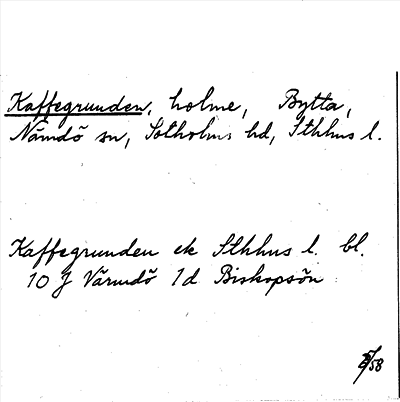 Kaffegrunden, holme, Bytta,
Nämdö sn, Sotholms hd, Sthlms l.
Kaffegrunden ek Sthlms l. bl.
10 J Värmdö 1d Biskopsön
/58